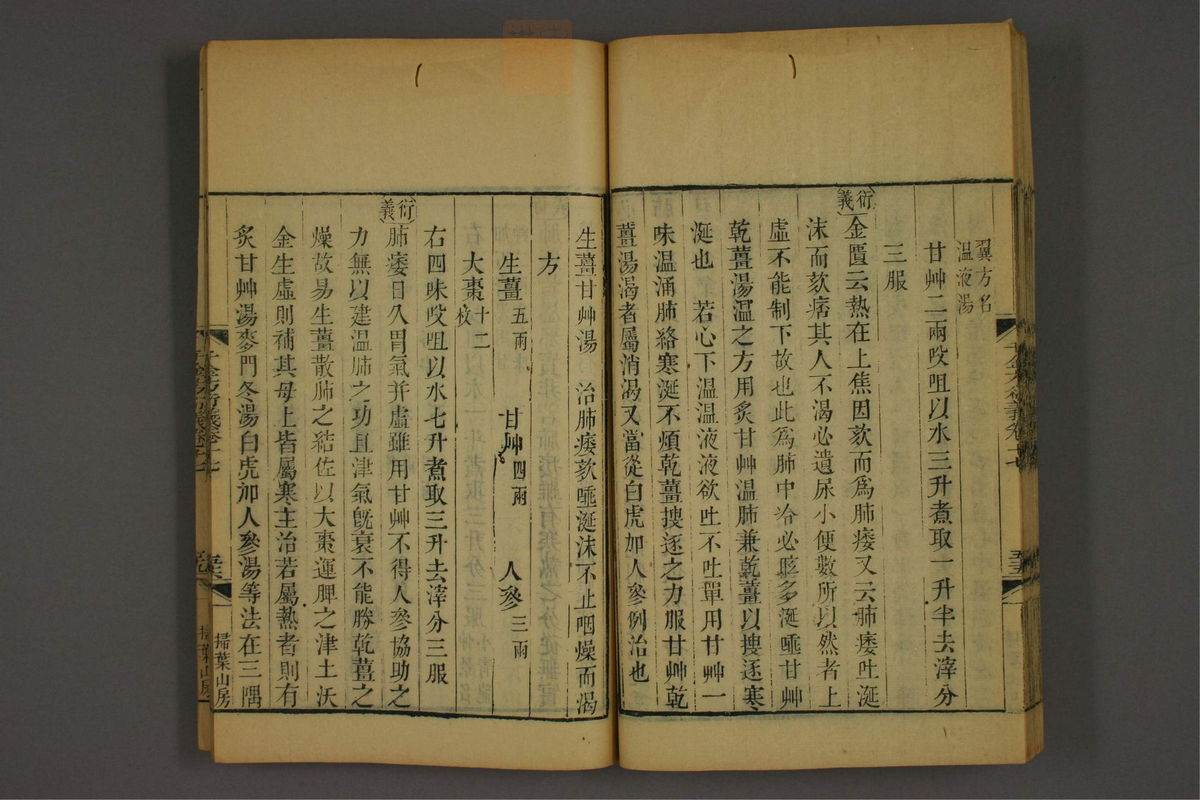 翼方名
溫液湯
甘艸二兩㕮咀以水三升煮取一升半去滓分
三服
衍義
金匱云熱在上焦因欬而爲肺痿又云肺痿吐涎
沫而欬痞其人不渴必遺尿小便數所以然者上
虛不能制下故也此爲肺中冷必眩多涎唾甘艸
乾薑湯溫之方用炙甘艸溫肺兼乾薑以搜逐寒
涎也 若心下溫溫液液欲吐不吐單用甘艸一
味溫涌肺絡寒涎不煩乾薑搜逐之力服甘艸乾
薑湯渴者屬消渴又當從白虎加人參例治也
生薑甘艸湯 治肺痿欬唾涎沫不止咽燥而渴
方
生薑五兩 甘艸四兩 人參三兩
大棗十二枚
右四味㕮咀以水七升煮取三升去滓分三服
衍義
肺痿日久胃氣并虛雖用甘艸不得人參協助之
力無以建溫肺之功且津氣旣衰不能勝乾薑之
燥故易生薑散肺之結佐以大棗運脾之津土沃
金生虛則補其母上皆屬寒主治若屬熱者則有
炙甘艸湯麥門冬湯白虎加人參湯等法在三隅
掃葉山房